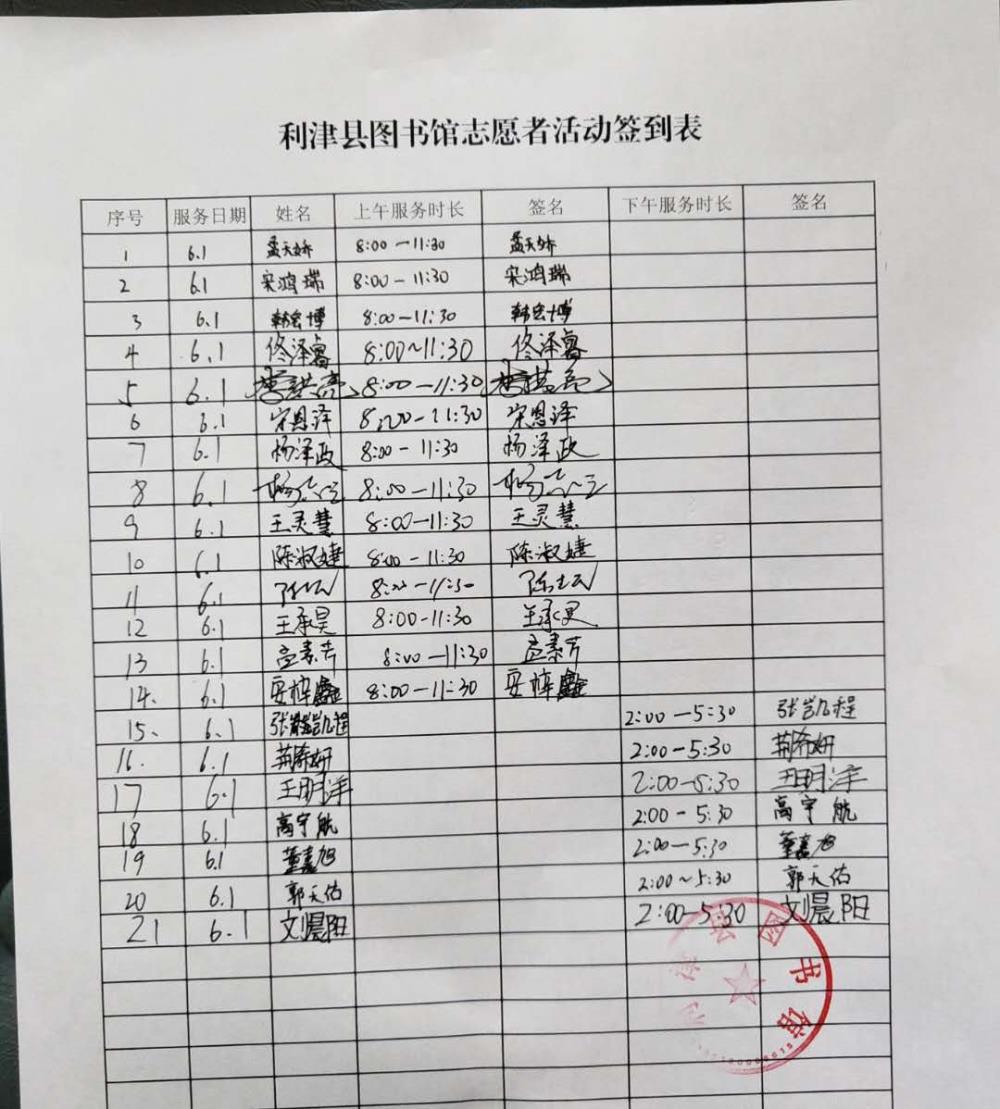 利津县图书馆志愿者活动签到表
序号 服务日期 姓名 上午服务时长 签名 下午服务时长 签名
1 6.1 孟天娇 8:00-11:30 孟天娇
2 6.1 宋鸿瑞 8:00-11:30 宋鸿瑞
3 6.1 韩宏博 8:00-11:30 韩宏博
4 6.1 佟泽睿 8:00~11:30 佟泽睿
5 6.1 8:00-11:30
6 6.1 宋恩泽 8:00-11:30 宋恩泽
7 6.1 杨泽政 8:00-11:30 杨泽政
8 6.1 8:00-11:30
9 6.1 王灵慧 8:00-11:30 王灵慧
10 6.1 陈淑婕 8:00-11:30 陈淑婕
11 6.1 8:00-11:30
12 6.1 王承昊 8:00-11:30 王承昊
13 6.1 孟素芳 8:00-11:30 孟素芳
14. 6.1 安梓鑫 8:00-11:30 安梓鑫
15、 6.1 张凯程 2:00-5:30 张凯程
16. 6.1 荆希妍 2:00-5:30 荆希妍
17 6.1 王明洋 2:00-5:30 王明洋
18 6.1 高宇航 2:00-5:30 高宇航
19 6.1 董嘉旭 2:00-5:30 董嘉旭
20 6.1 郭天佑 2:00~5:30 郭天佑
21 6.1 刘晨阳 2:00-5:30 刘晨阳
利津县图书馆